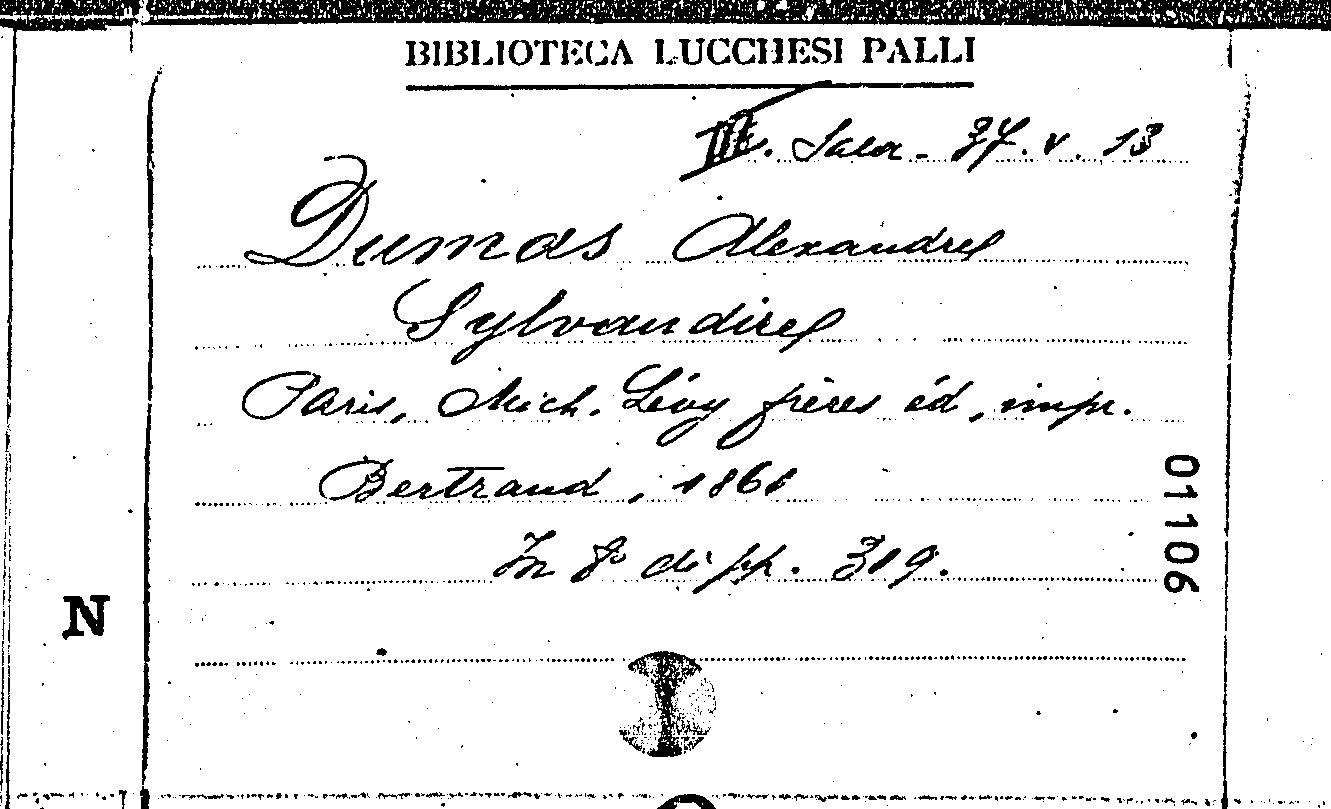 BIBLIOTECA LUCCHESI PALLI
III. Sala. 37. V. 13
Dumas Alexandre
Sylvandire
Paris, Mich. Lévy frères éd, impr.
Bertrand, 1861
In 8° di pp. 319.
01106
N